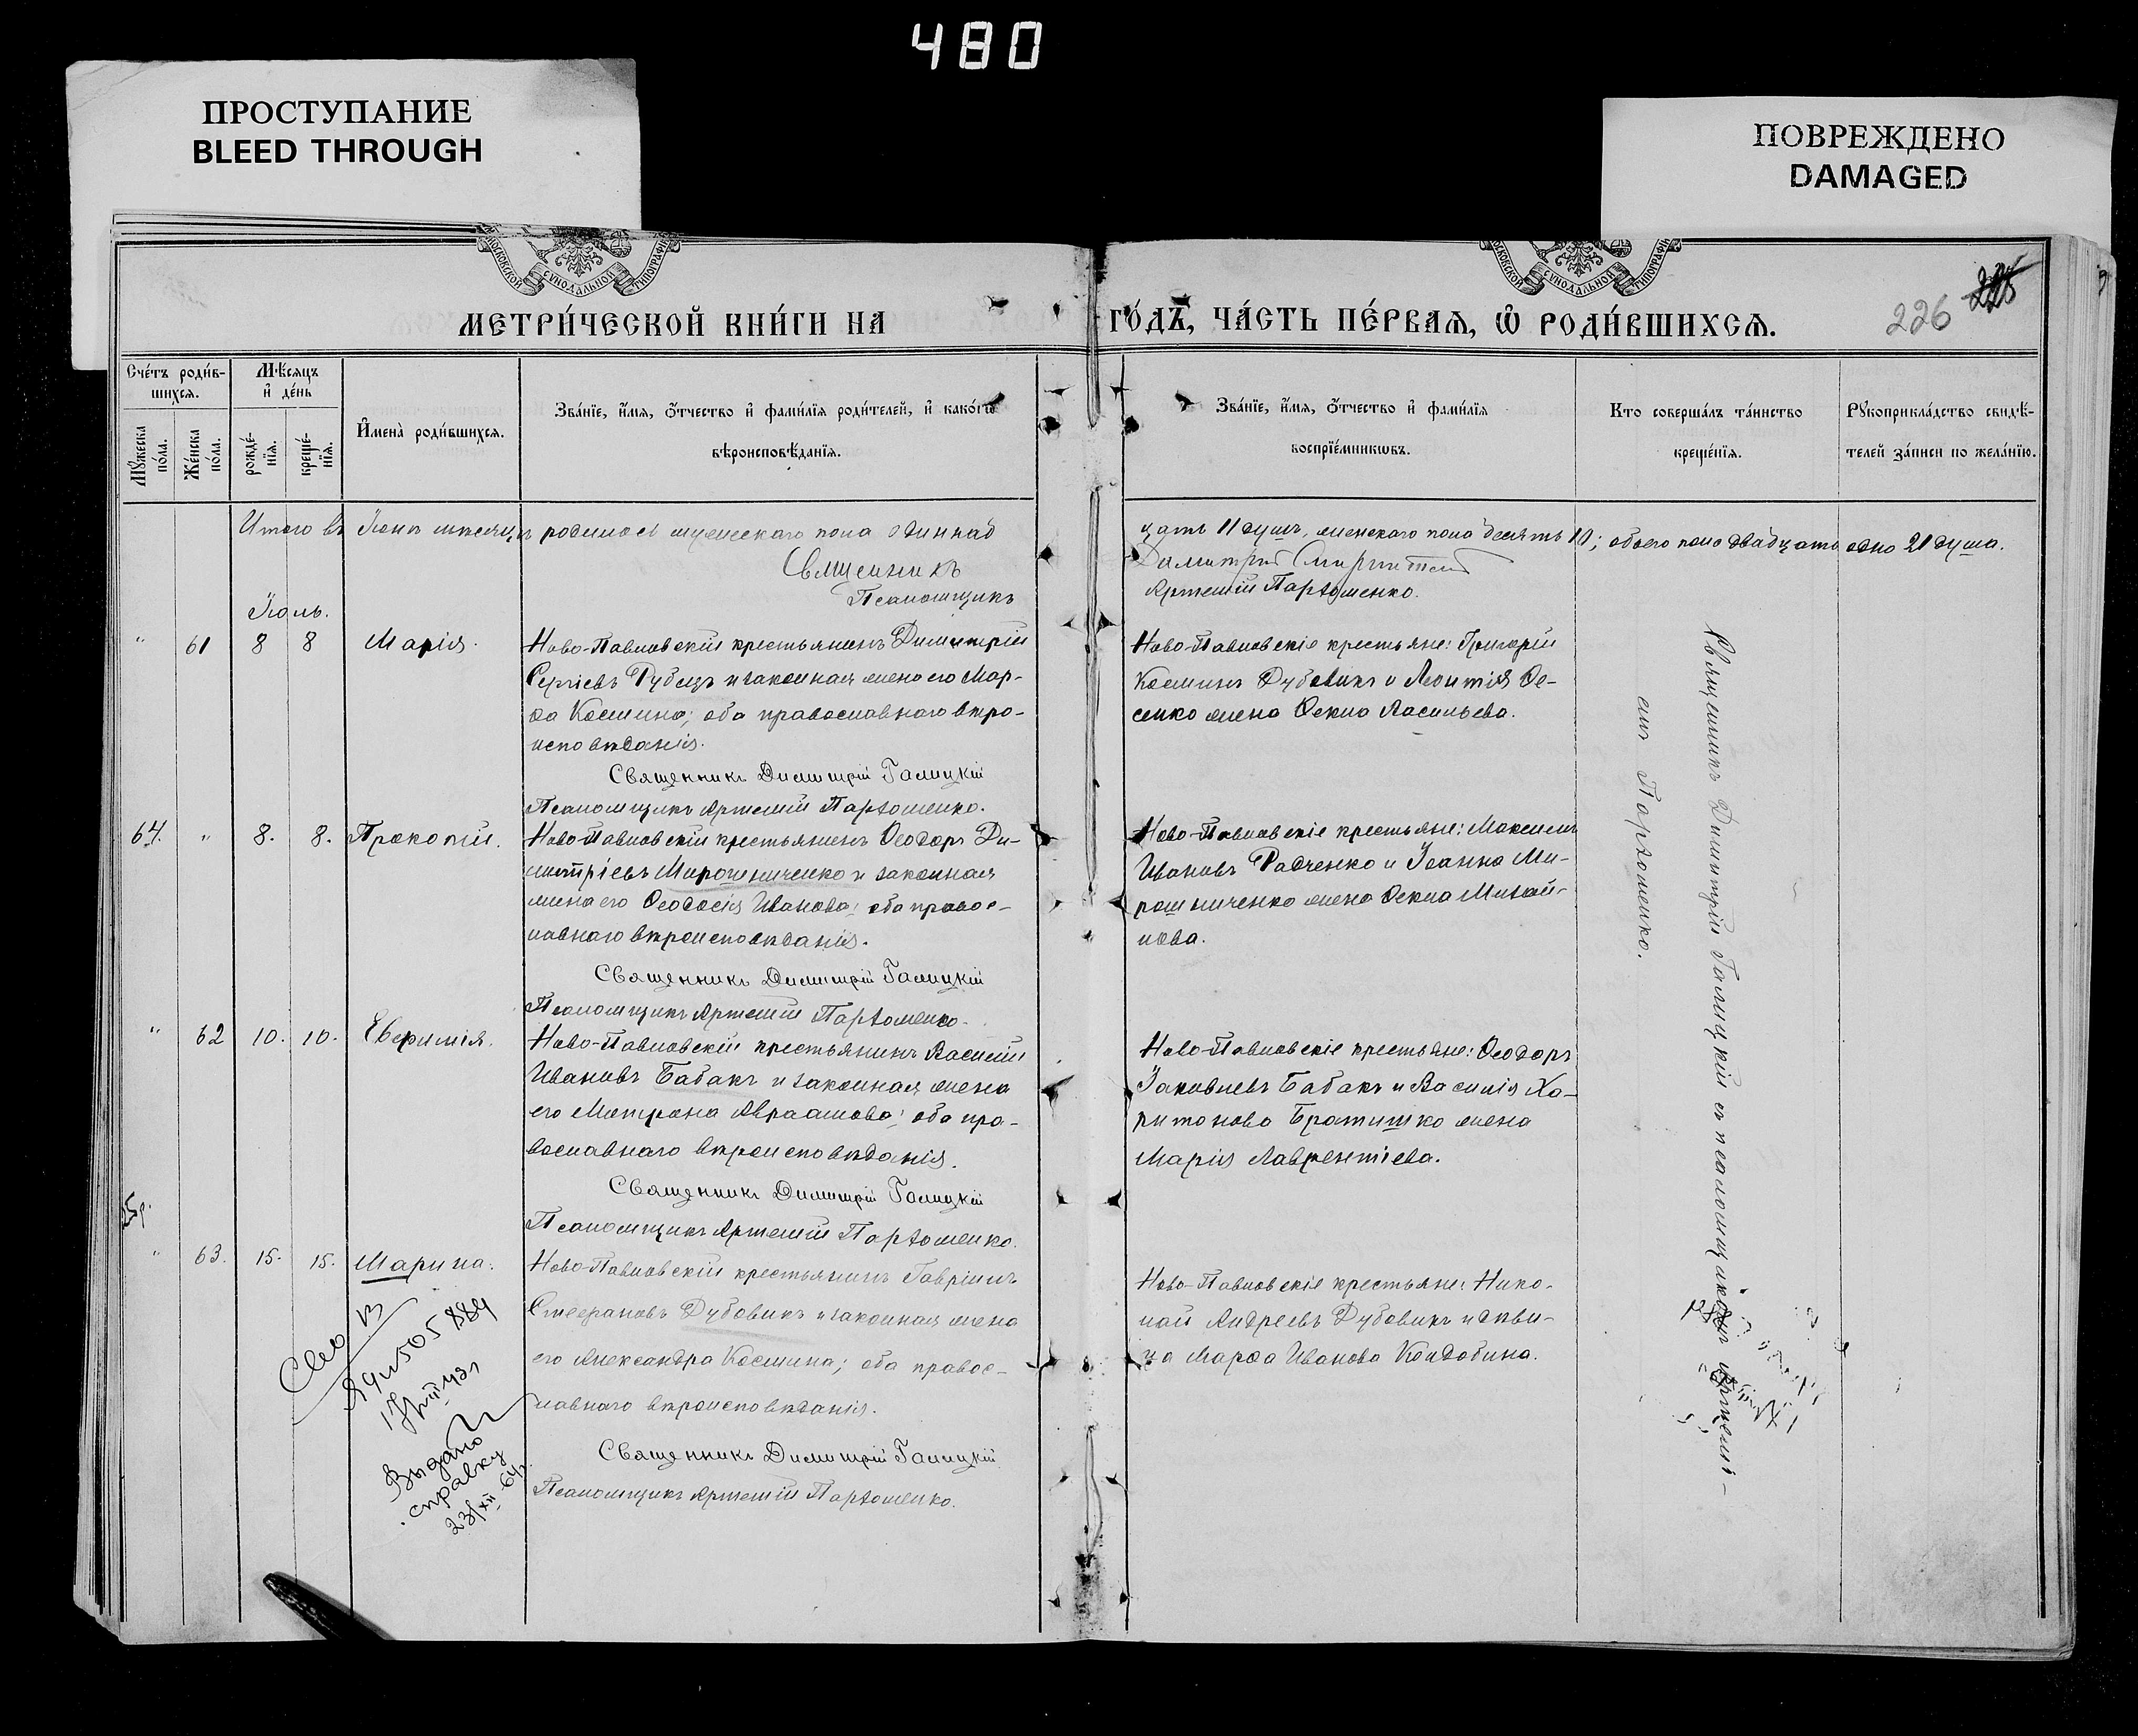 480
ПРОСТУПАНИЕ
BLEED THROUGH
ПОВРЕЖДЕНО
DAMAGED
МОСКОВСКОЙ СУНОДАЛЬНОЙ ТИПОГРАФІИ
МОСКОВСКОЙ СУНОДАЛЬНОЙ ТИПОГРАФІИ
МЕТРИ́ЧЕСКОЙ КНИ́ГИ НА
ГО́ДЪ, ЧА́СТЬ ПЕ́РВАѦ, Ѡ҆ РОДИ́ВШИХСѦ.
226 225
Сче́тъ роди́в-
шихсѧ.
Мѣ́сѧцъ
и҆ де́нь
Мꙋ́жеска по́ла.
Же́нска по́ла.
рожде́-
нїѧ.
креще́-
нїѧ.
И҆мена̀ роди́вшихсѧ.
Зва́нїе, и҆́мѧ, ѻ҆́тчество и҆ фами́лїѧ роди́телей, и҆ како́гѡ
вѣроисповѣ́данїѧ.
Зва́нїе, и҆́мѧ, ѻ҆́тчество и҆ фами́лїѧ
воспрїе́мникѡвъ.
Кто соверша́лъ та́инство
креще́нїѧ.
Рꙋкоприкла́дство свидѣ́-
телей за́писи по жела́нїю.
Итого въ Іюнѣ мѣсяцѣ родилось мужескаго пола одиннад
цать 11 душъ, женскаго пола десять 10; обоего пола двадцать одна 21 душа.
Священникъ
Псаломщикъ
Артемій Пархоменко.
Іюль.
" 61 8 8 Марія.
Ново-Павловскій крестьянинъ Димитрій
Сергіевъ Рубецъ и законная жена его Мар-
ѳа Космина; оба православнаго вѣро-
исповѣданія.
Священникъ Димитрій Галицкій
Псаломщикъ Артемій Пархоменко.
Ново-Павловскіе крестьяне: Григорій
Косминъ Дубовикъ и Леонтія Ѳе-
сенко жена Ѳекла Васильева.
64. " 8. 8. Прокопій.
Ново-Павловскій крестьянинъ Ѳеодоръ Ди-
митріевъ Мирошниченко и законная
жена его Ѳеодосія Иванова; оба правос-
лавнаго вѣроисповѣданія.
Священникъ Димитрій Галицкій
Псаломщикъ Артемій Пархоменко.
Ново-Павловскіе крестьяне: Максимъ
Ивановъ Радченко и Іоанна Ми-
рошниченко жена Ѳекла Михай-
лова.
" 62 10. 10. Евфимія.
Ново-Павловскій крестьянинъ Василій
Ивановъ Бабакъ и законная жена
его Матрона Авраамова; оба пра-
вославнаго вѣроисповѣданія.
Священникъ Димитрій Галицкій
Псаломщикъ Артемій Пархоменко.
Ново-Павловскіе крестьяне: Ѳеодоръ
Іаковлевъ Бабакъ и Василія Ха-
ритонова Братишко жена
Марія Лаврентіева.
" 63. 15. 15. Марина.
Ново-Павловскій крестьянинъ Гавріилъ
Стефановъ Дубовикъ и законная жена
его Александра Космина; оба правос-
лавнаго вѣроисповѣданія.
Священникъ Димитрій Галицкій
Псаломщикъ Артемій Пархоменко.
Ново-Павловскіе крестьяне: Нико-
лай Андреевъ Дубовикъ и дѣви-
ца Марѳа Иванова Колдобина.
Священникъ Димитрій Галицкій съ псаломщикомъ Артемі-
емъ Пархоменко.
505884
Выдано
справку
23/XII-64г.